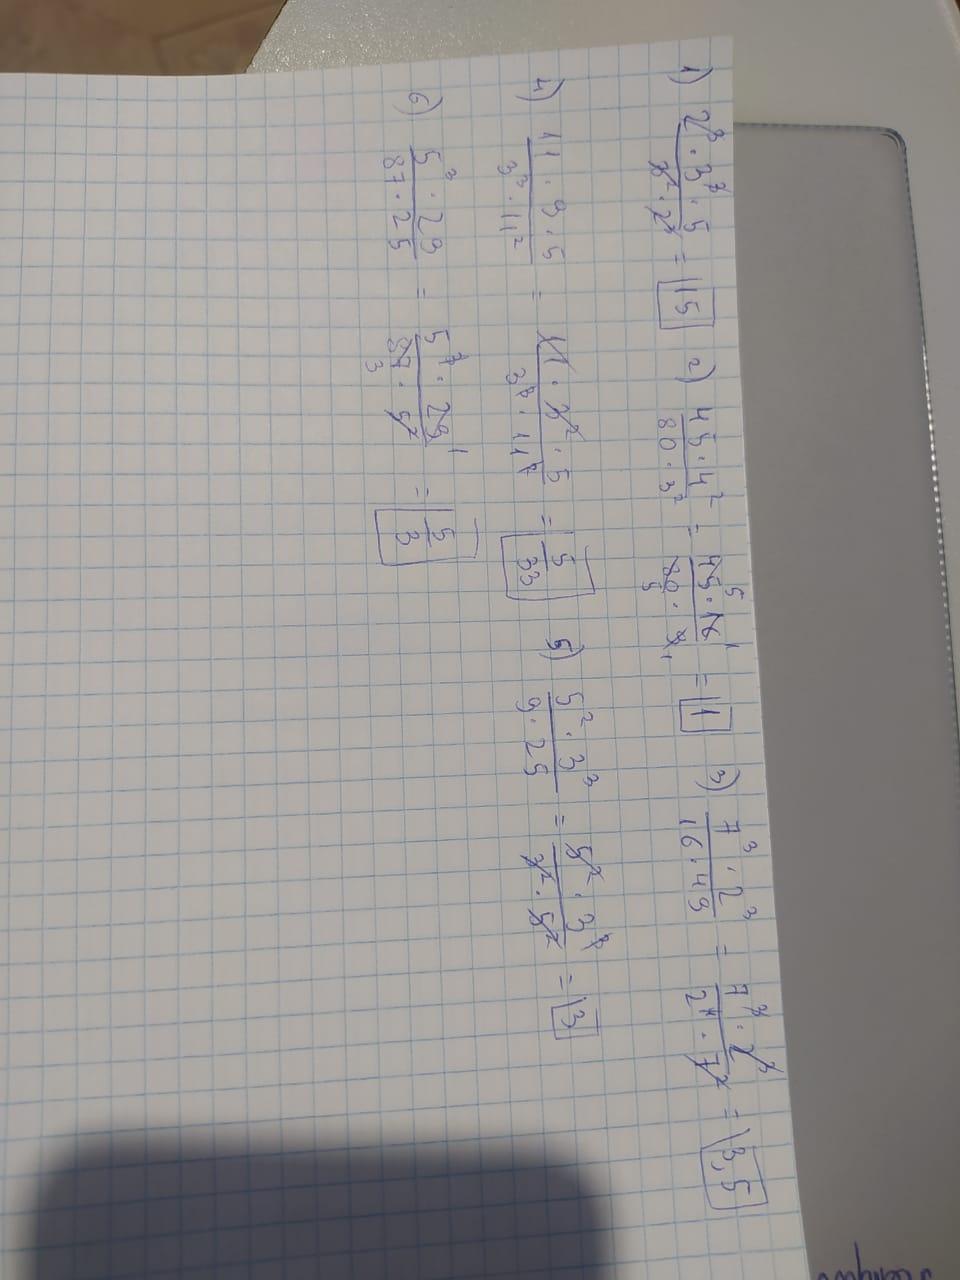 1) 2³·3³·5 / 3²·2³ = 15 2) 45·4² / 80·3² = 45·16 / 80·9 = 1 3) 7³·2³ / 16·49 = 7³·2³ / 2⁴·7² = 3,5
4) 11·9·5 / 3³·11² = 11·3²·5 / 3³·11² = 5/33 5) 5²·3³ / 9·25 = 5²·3³ / 3²·5² = 3
6) 5³·29 / 87·25 = 5³·29 / 87·5² = 5/3